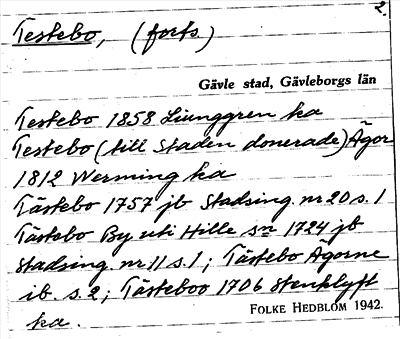 2.
Testebo, (forts.)
Gävle stad, Gävleborgs län
Testebo 1858 Liunggren ka
Testebo (till Staden donerade) Ägor
1812 Werming ka
Tästebo 1757 jb Stadsing. nr 20 s. 1
Tästebo By uti Hille sn 1724 jb
Stadsing. nr 11 s. 1; Tästebo Ägorne
ib. s. 2; Tästeboo 1706 Stenklyft
ka.
FOLKE HEDBLOM 1942.